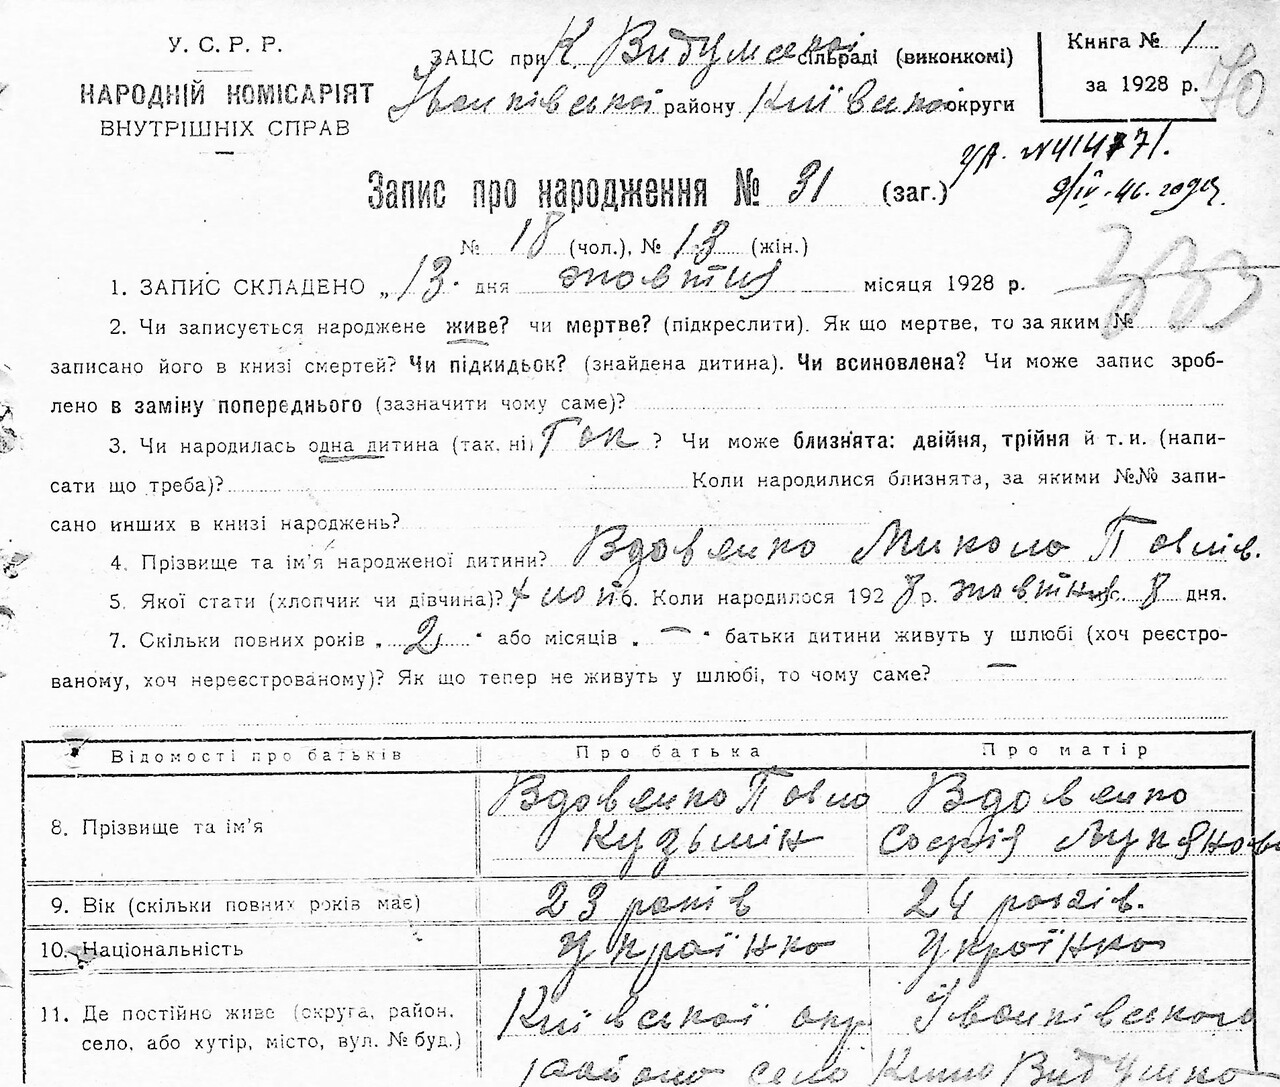 У. С. Р. Р.
НАРОДНІЙ КОМІСАРІЯТ
ВНУТРІШНІХ СПРАВ
ЗАЦС при К Видумській сільраді (виконкомі)
Іванківської району Київської округи
Книга № 1
за 1928 р.
70
ул. N 414771.
9/IV-46 году
Запис про народження № 31 (заг.)
№ 18 (чол.), № 13 (жін.)
333
1. ЗАПИС СКЛАДЕНО „13" дня жовтня місяця 1928 р.
2. Чи записується народжене живе? чи мертве? (підкреслити). Як що мертве, то за яким №
записано його в книзі смертей? Чи підкидьок? (знайдена дитина). Чи всиновлена? Чи може запис зроб-
лено в заміну попереднього (зазначити чому саме)?
3. Чи народилась одна дитина (так, ні) Так ? Чи може близнята: двійня, трійня й т. и. (напи-
сати що треба)? Коли народилися близнята, за якими №№ запи-
сано инших в книзі народжень?
4. Прізвище та ім'я народженої дитини? Вдовенко Микола Павлів.
5. Якої стати (хлопчик чи дівчина)? хлоп. 6. Коли народилося 1928 р. жовтня 8 дня.
7. Скільки повних років „2" або місяців „—" батьки дитини живуть у шлюбі (хоч реєстро-
ваному, хоч нереєстрованому)? Як що тепер не живуть у шлюбі, то чому саме? —
Відомості про батьків Про батька Про матір
8. Прізвище та ім'я Вдовенко Павло Кузьмін Вдовенко Софія Лупянова
9. Вік (скільки повних років має) 23 років 24 років.
10. Національність Українко Українка
11. Де постійно живе (округа, район, Київської окр Іванківського
село, або хутір, місто, вул. № буд.) району село Видумка